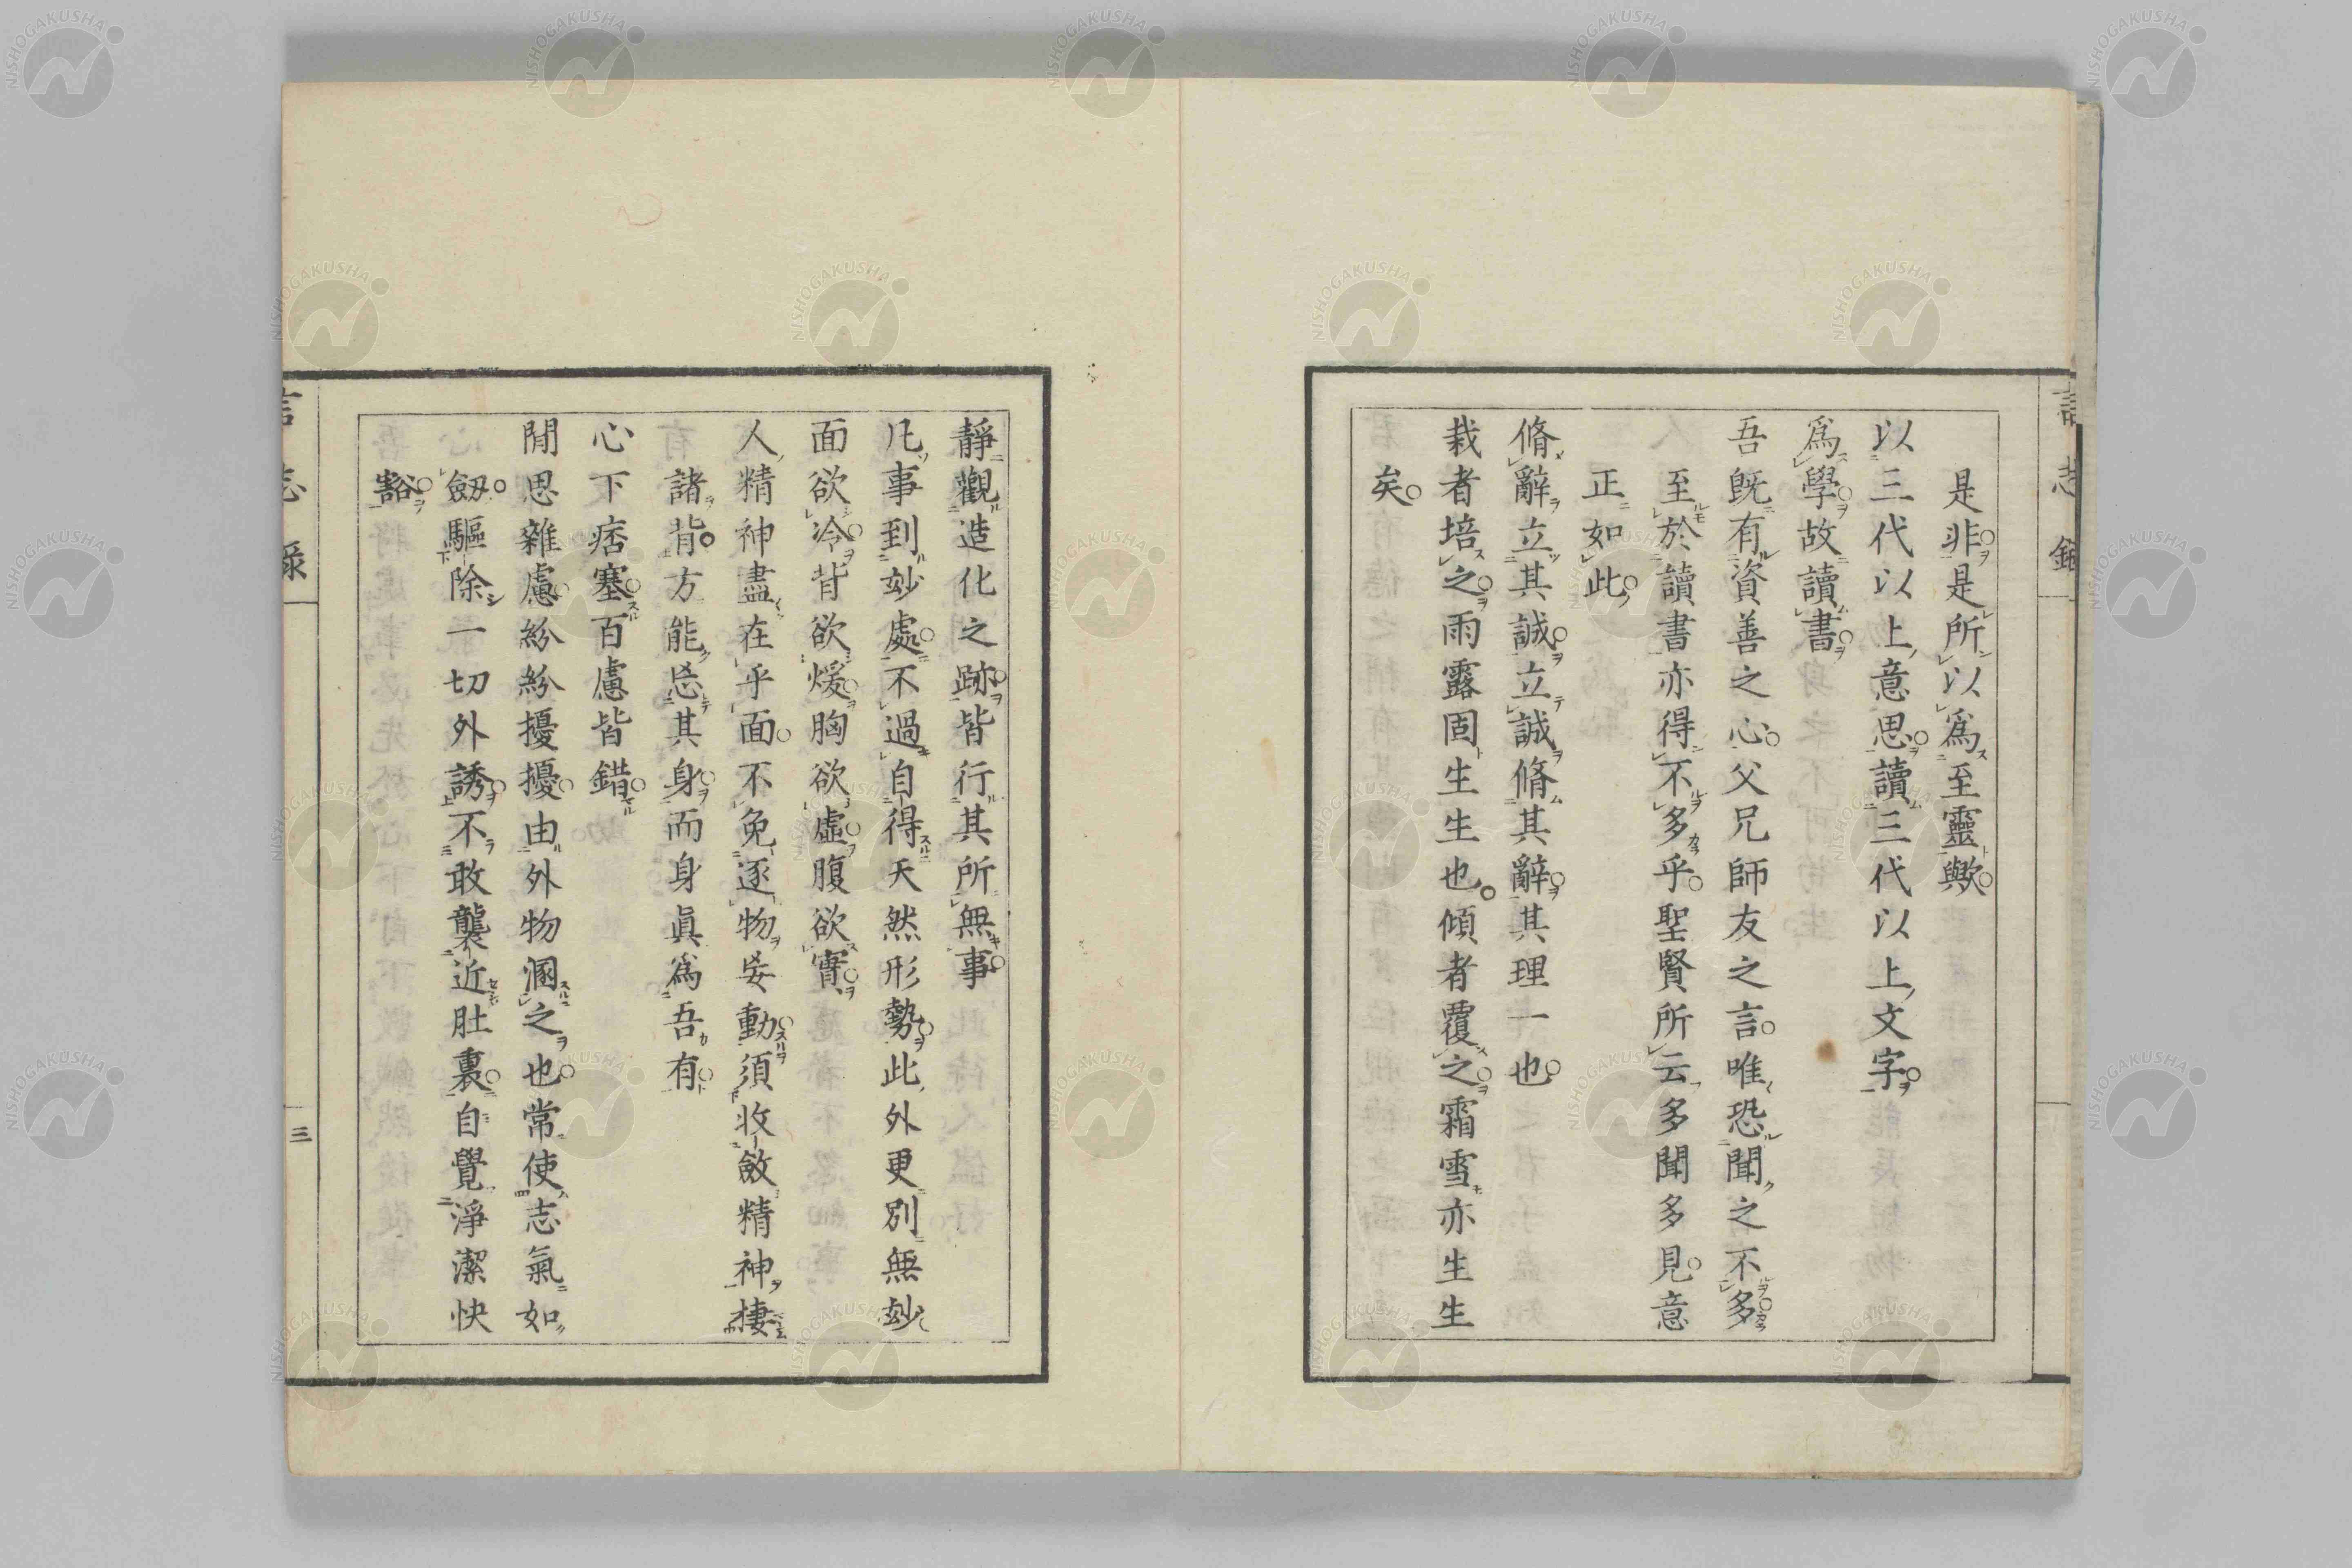 是非是所以爲至靈歟
以三代以上意思讀三代以上文字
爲學故讀書
吾既有資善之心父兄師友之言唯恐聞之不多
至於讀書亦得不多乎聖賢所云多聞多見意
正如此
脩辭立其誠立誠脩其辭其理一也
栽者培之雨露固生生也傾者覆之霜雪亦生生
矣
靜觀造化之跡皆行其所無事
凡事到玅處不過自得天然形勢此外更別無玅
面欲冷背欲煖胸欲虛腹欲實
人精神盡在乎面不免逐物妄動須收斂精神棲
諸背方能忘其身而身眞爲吾有
心下痞塞百慮皆錯
閒思雜慮紛紛擾擾由外物溷之也常使志氣如
劔驅除一切外誘不敢襲近肚裏自覺淨潔快
豁
言志錄
三
NISHOGAKUSHA